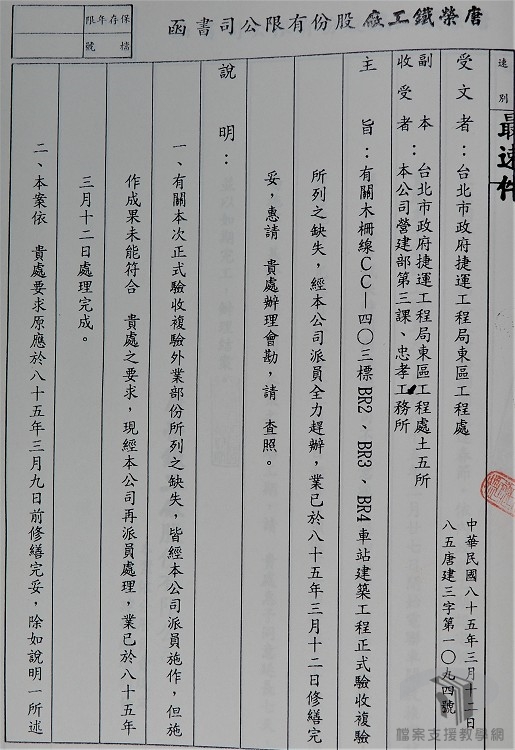 唐榮鐵工廠股份有限公司書函
保存年限
檔號
速別
最速件
受文者：台北市政府捷運工程局東區工程處
中華民國八十五年三月十二日
八五唐建三字第一〇九四號
副本收受者：台北市政府捷運工程局東區工程處土五所
本公司營建部第三課、忠孝工務所
主旨：有關木柵線CC—四〇三標BR2、BR3、BR4車站建築工程正式驗收複驗
所列之缺失，經本公司派員全力趕辦，業已於八十五年三月十二日修繕完
妥，惠請　貴處辦理會勘，請　查照。
說明：
一、有關本次正式驗收複驗外業部份所列之缺失，皆經本公司派員施作，但施
作成果未能符合　貴處之要求，現經本公司再派員處理，業已於八十五年
三月十二日處理完成。
二、本案依　貴處要求原應於八十五年三月九日前修繕完妥，除如說明一所述
檔案支援教學網